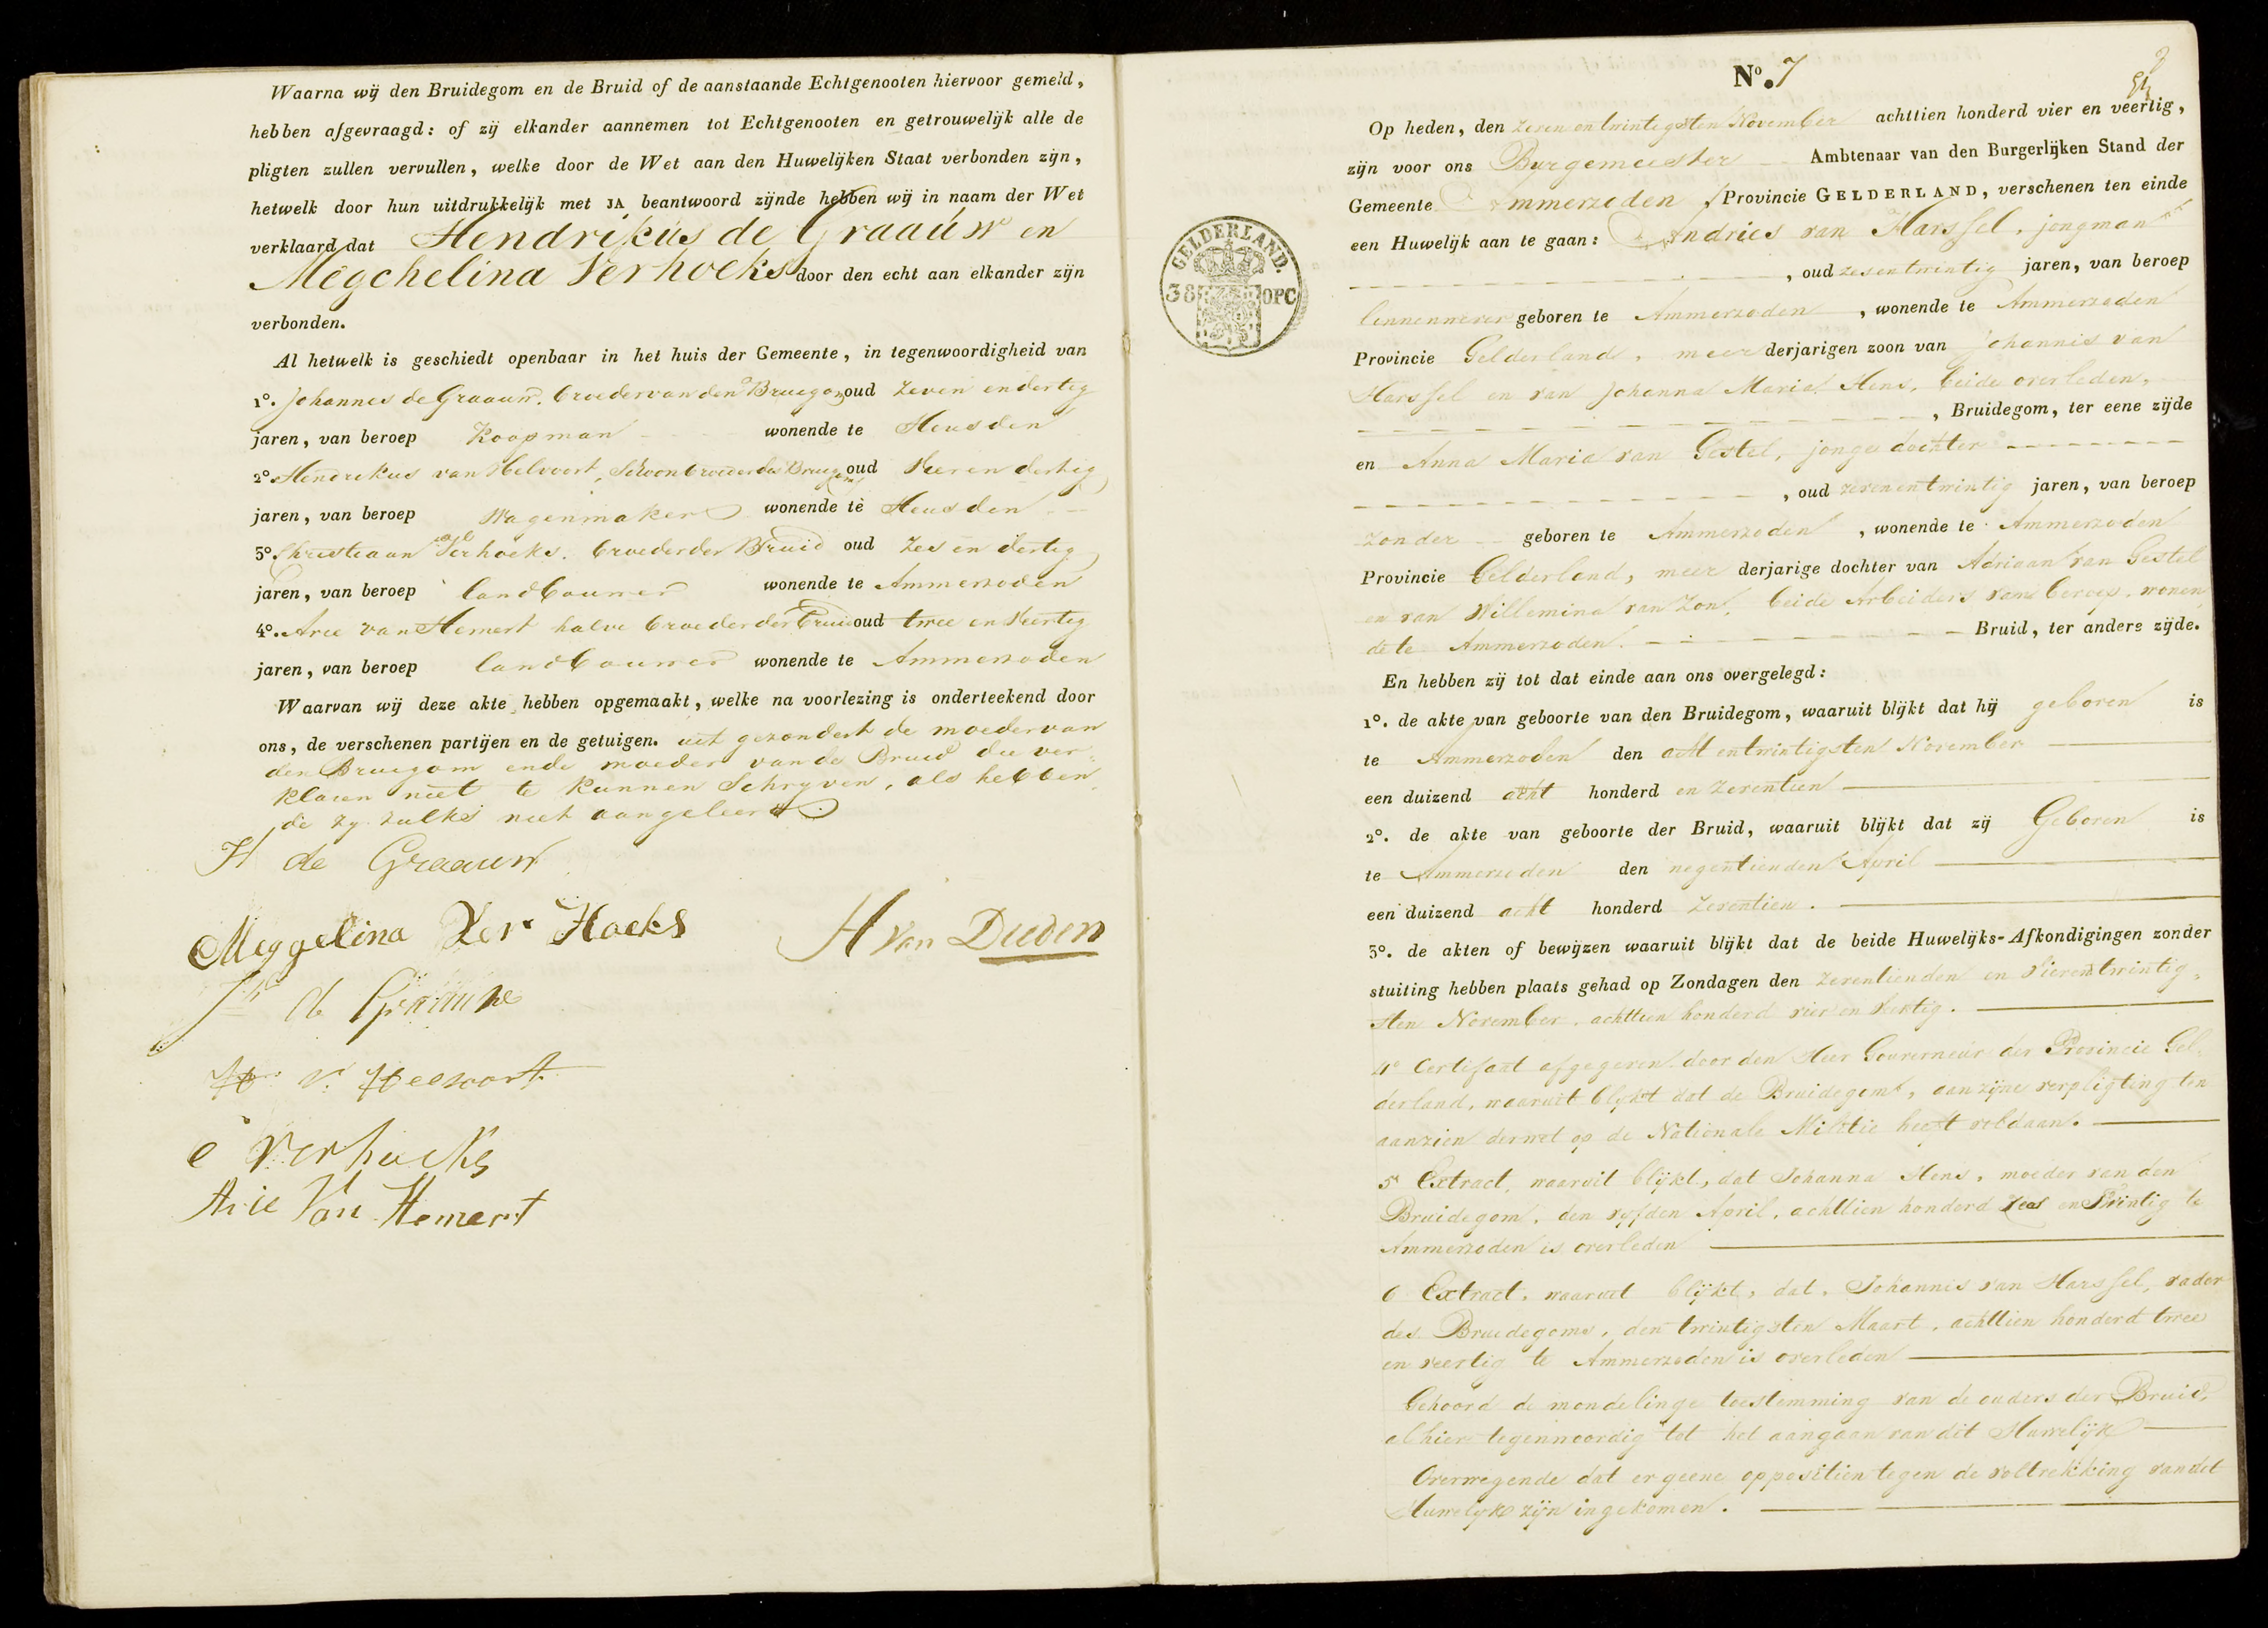 Waarna wij den Bruidegom en de Bruid of de aanstaande Echtgenooten hiervoor gemeld,
hebben afgevraagd: of zij elkander aannemen tot Echtgenooten en getrouwelijk alle de
pligten zullen vervullen, welke door de Wet aan den Huwelijken Staat verbonden zijn,
hetwelk door hun uitdrukkelijk met JA beantwoord zijnde hebben wij in naam der Wet
verklaard dat Hendrikus de Graauw en
Megchelina Verhoeks door den echt aan elkander zijn
verbonden.
Al hetwelk is geschiedt openbaar in het huis der Gemeente, in tegenwoordigheid van
1º. Johannes de Graauw. broeder van den Bruegom oud zeven en dertig
jaren, van beroep Koopman wonende te Heusden
2º Hendrikus van Helvoort, Schoonbroeder des Bruegoms oud Vier en dertig
jaren, van beroep Wagenmaker wonende te Heusden
3º. Christiaan Verhoeks. broeder der Bruid oud Zes en dertig
jaren, van beroep landbouwer wonende te Ammerzoden
4º. Arie van Hemert halve broeder der Bruid oud twee en Veertig
jaren, van beroep landbouwer wonende te Ammerzoden
Waarvan wij deze akte hebben opgemaakt, welke na voorlezing is onderteekend door
ons, de verschenen partijen en de getuigen. uit gezondert de moeder van
den Bruegom ende moeder van de Bruid die ver-
klaren niet te kunnen Schryven, als hebben
de zy zulks niet aangeleert
H de Graauw
Meggelina Ver Hoeks
H van Dieden
Jh de Graauw
H v Helvoort
C verhoeks
Arie Van Hemert
Nº. 7
Op heden, den zeven en twintigsten November achttien honderd vier en veertig,
zijn voor ons Burgemeester Ambtenaar van den Burgerlijken Stand der
Gemeente Ammerzoden Provincie GELDERLAND, verschenen ten einde
een Huwelijk aan te gaan: Andries van Harssel, jongman
, oud zesentwintig jaren, van beroep
linnenwever geboren te Ammerzoden , wonende te Ammerzoden
Provincie Gelderland, meer derjarigen zoon van Johannis van
Harssel en van Johanna Maria Hens, beide overleden,
, Bruidegom, ter eene zijde
en Anna Maria van Gestel, jonge dochter
, oud zevenentwintig jaren, van beroep
zonder geboren te Ammerzoden , wonende te Ammerzoden
Provincie Gelderland, meer derjarige dochter van Adriaan van Gestel
en van Willemina van Zon, beide Arbeiders van beroep, wonen
de te Ammerzoden. Bruid, ter andere zijde.
En hebben zij tot dat einde aan ons overgelegd:
1º. de akte van geboorte van den Bruidegom, waaruit blijkt dat hij geboren is
te Ammerzoden den acht en twintigsten November
een duizend acht honderd en zeventien
2º. de akte van geboorte der Bruid, waaruit blijkt dat zij Geboren is
te Ammerzoden den negentienden April
een duizend acht honderd zeventien.
3º. de akten of bewijzen waaruit blijkt dat de beide Huwelijks-Afkondigingen zonder
stuiting hebben plaats gehad op Zondagen den zeventienden en vierentwintig,
sten November, achttien honderd vier en veertig.
4º Certificaat afgegeven door den Heer Gouverneur der Provincie Gel,
derland, waaruit blijkt dat de Bruidegom, aan zijne verpligting ten
aanzien der wet op de Nationale Militie heeft voldaan.
5º Extract, waaruit blijkt, dat Johanna Hens, moeder van den
Bruidegom, den vyfden April, achttien honderd zes en twintig te
Ammerzoden is overleden
6 Extract, waaruit blijkt, dat, Johannis van Harssel, vader
des Bruidegoms, den twintigsten Maart, achttien honderd twee
en veertig te Ammerzoden is overleden
Gehoord de mondelinge toestemming van de ouders der Bruid,
alhier tegenwoordig tot het aangaan van dit Huwelijk
Overwegende dat er geene oppositien tegen de voltrekking van dit
Huwelijk zijn ingekomen.
GELDERLAND.
38 OPC